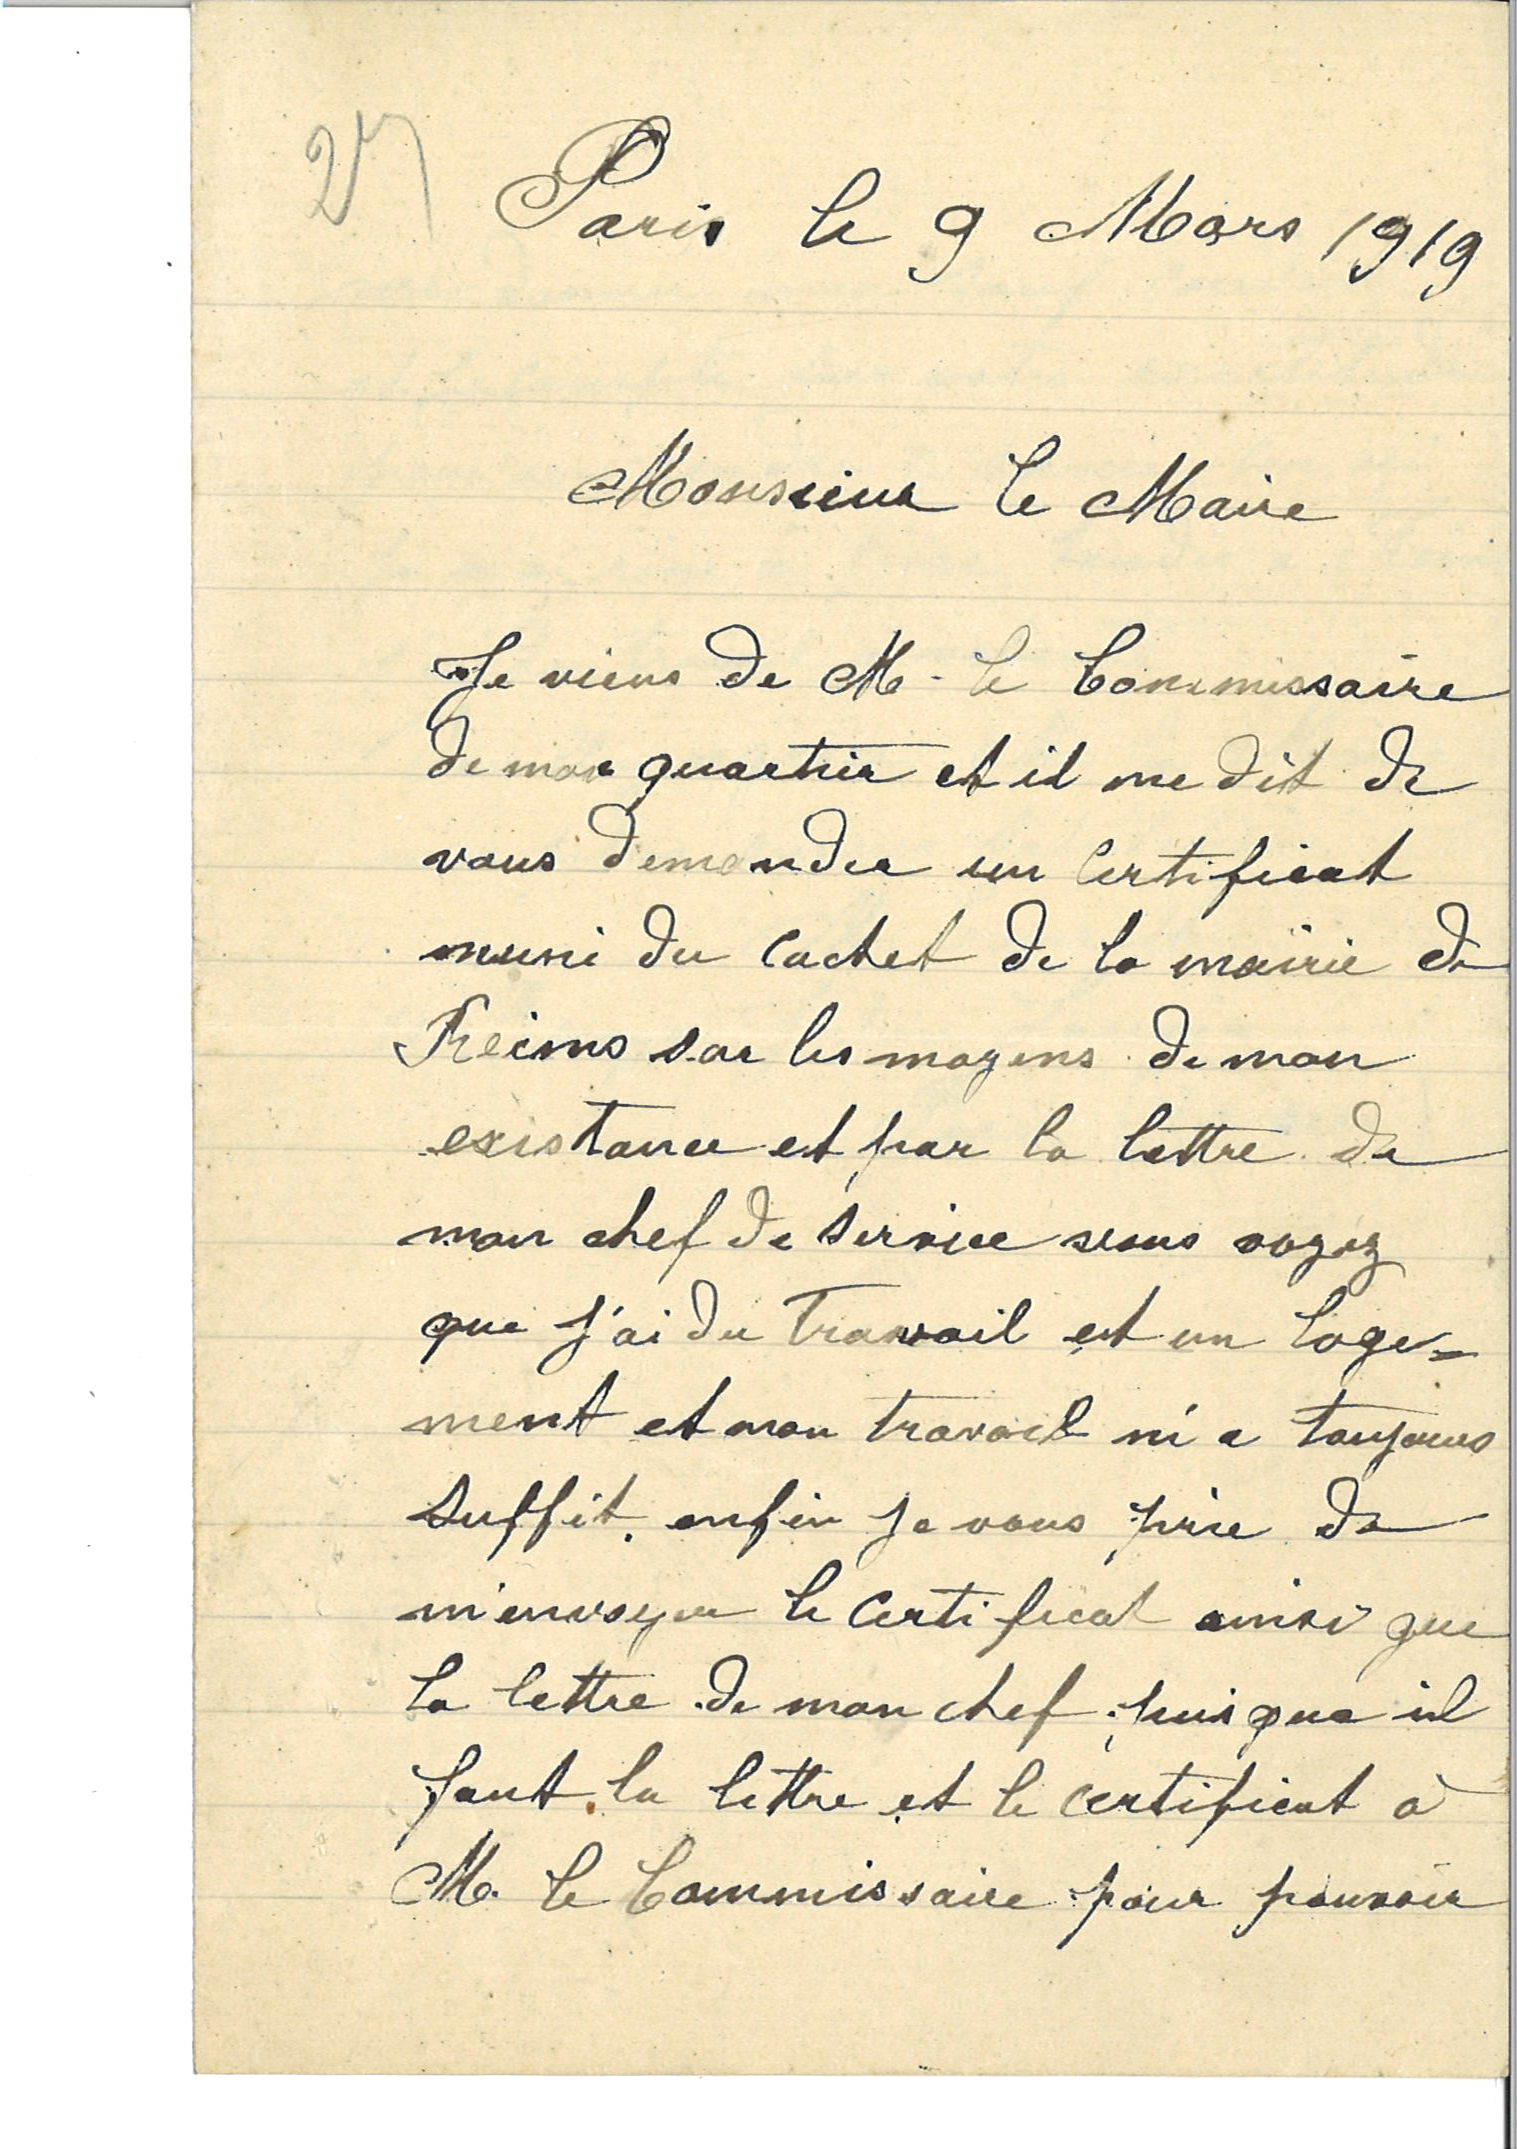 27
Paris le 9 Mars 1919
Monsieur le Maire
Je viens de M. le Commissaire
de mon quartier et il me dit de
vous demander un certificat
muni du cachet de la mairie de
Reims sur les moyens de mon
existance et par la lettre de
mon chef de service vous voyez
que j'ai du travail et un loge=
ment et mon travail m'a toujours
suffit. enfin je vous prie de
m'envoyer le certificat ainsi que
la lettre de mon chef puis que il
faut la lettre et le certificat à
M. le Commissaire pour pouvoir